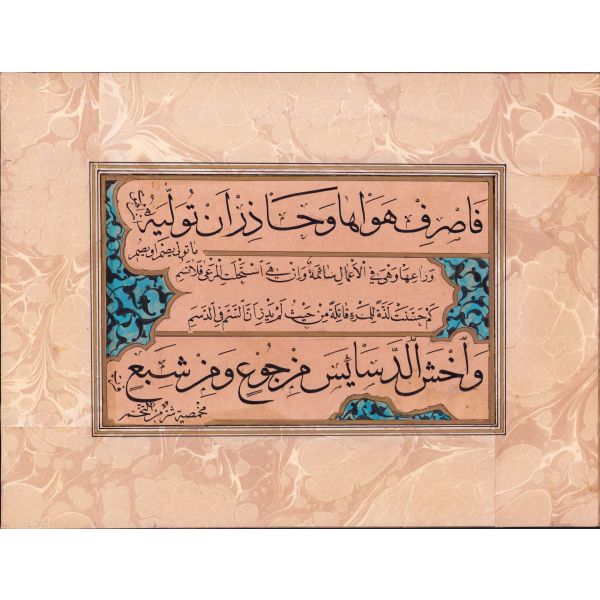 فَاصْرِفْ هَوَاهَا وَحَاذِرْ أَنْ تُوَلِّيَهُ
مَا تَوَلَّى يُصْمِ أَوْ يَصِمِ
وَرَاعِهَا وَهِيَ فِي الْأَعْمَالِ سَائِمَةٌ وَإِنْ هِيَ اسْتَحْلَتِ الْمَرْعَى فَلَا تُسِمِ
كَمْ حَسَّنَتْ لَذَّةً لِلْمَرْءِ قَاتِلَةً مِنْ حَيْثُ لَمْ يَدْرِ أَنَّ السَّمَّ فِي الدَّسَمِ
وَاخْشَ الدَّسَائِسَ مِنْ جُوعٍ وَمِنْ شِبَعٍ
مخمصة شر من التخم